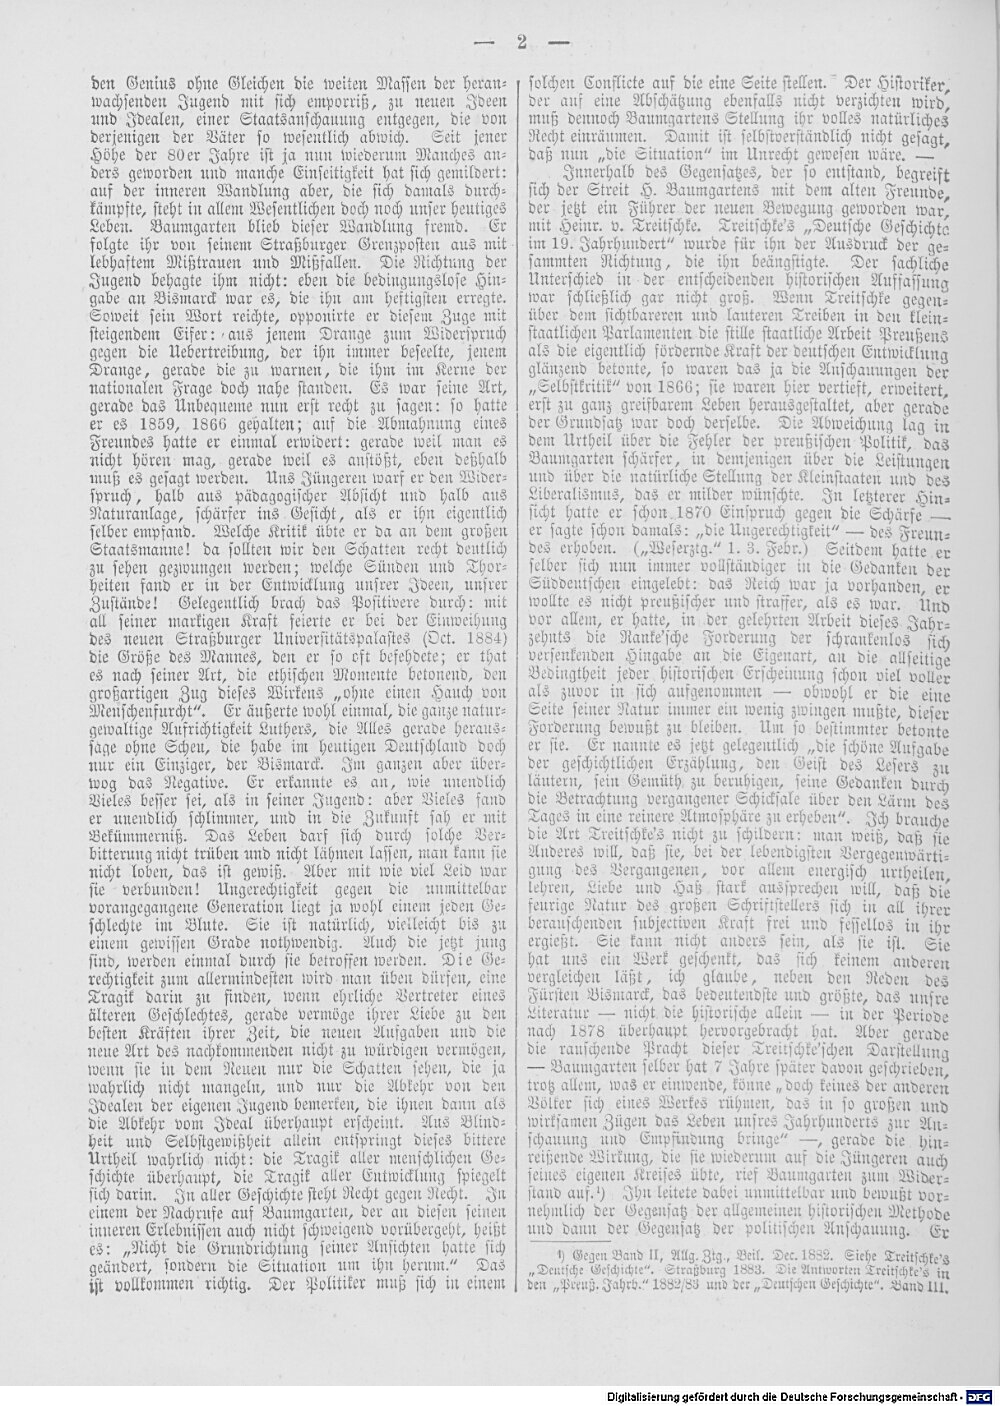 — 2 —
den Genius ohne Gleichen die weiten Massen der heran-
wachsenden Jugend mit sich emporriß, zu neuen Ideen
und Idealen, einer Staatsanschauung entgegen, die von
derjenigen der Väter so wesentlich abwich. Seit jener
Höhe der 80er Jahre ist ja nun wiederum Manches an-
ders geworden und manche Einseitigkeit hat sich gemildert:
auf der inneren Wandlung aber, die sich damals durch-
kämpfte, steht in allem Wesentlichen doch noch unser heutiges
Leben. Baumgarten blieb dieser Wandlung fremd. Er
folgte ihr von seinem Straßburger Grenzposten aus mit
lebhaftem Mißtrauen und Mißfallen. Die Richtung der
Jugend behagte ihm nicht: eben die bedingungslose Hin-
gabe an Bismarck war es, die ihn am heftigsten erregte.
Soweit sein Wort reichte, opponirte er diesem Zuge mit
steigendem Eifer: aus jenem Drange zum Widerspruch
gegen die Uebertreibung, der ihn immer beseelte, jenem
Drange, gerade die zu warnen, die ihm im Kerne der
nationalen Frage doch nahe standen. Es war seine Art,
gerade das Unbequeme nun erst recht zu sagen: so hatte
er es 1859, 1866 gehalten; auf die Abmahnung eines
Freundes hatte er einmal erwidert: gerade weil man es
nicht hören mag, gerade weil es anstößt, eben deßhalb
muß es gesagt werden. Uns Jüngeren warf er den Wider-
spruch, halb aus pädagogischer Absicht und halb aus
Naturanlage, schärfer ins Gesicht, als er ihn eigentlich
selber empfand. Welche Kritik übte er da an dem großen
Staatsmanne! da sollten wir den Schatten recht deutlich
zu sehen gezwungen werden; welche Sünden und Thor-
heiten fand er in der Entwicklung unsrer Ideen, unsrer
Zustände! Gelegentlich brach das Positivere durch: mit
all seiner markigen Kraft feierte er bei der Einweihung
des neuen Straßburger Universitätspalastes (Oct. 1884)
die Größe des Mannes, den er so oft befehdete; er that
es nach seiner Art, die ethischen Momente betonend, den
großartigen Zug dieses Wirkens „ohne einen Hauch von
Menschenfurcht“. Er äußerte wohl einmal, die ganze natur-
gewaltige Aufrichtigkeit Luthers, die Alles gerade heraus-
sage ohne Scheu, die habe im heutigen Deutschland doch
nur ein Einziger, der Bismarck. Im ganzen aber über-
wog das Negative. Er erkannte es an, wie unendlich
Vieles besser sei, als in seiner Jugend: aber Vieles fand
er unendlich schlimmer, und in die Zukunft sah er mit
Bekümmerniß. Das Leben darf sich durch solche Ver-
bitterung nicht trüben und nicht lähmen lassen, man kann sie
nicht loben, das ist gewiß. Aber mit wie viel Leid war
sie verbunden! Ungerechtigkeit gegen die unmittelbar
vorangegangene Generation liegt ja wohl einem jeden Ge-
schlechte im Blute. Sie ist natürlich, vielleicht bis zu
einem gewissen Grade nothwendig. Auch die jetzt jung
sind, werden einmal durch sie betroffen werden. Die Ge-
rechtigkeit zum allermindesten wird man üben dürfen, eine
Tragik darin zu finden, wenn ehrliche Vertreter eines
älteren Geschlechtes, gerade vermöge ihrer Liebe zu den
besten Kräften ihrer Zeit, die neuen Aufgaben und die
neue Art des nachkommenden nicht zu würdigen vermögen,
wenn sie in dem Neuen nur die Schatten sehen, die ja
wahrlich nicht mangeln, und nur die Abkehr von den
Idealen der eigenen Jugend bemerken, die ihnen dann als
die Abkehr vom Ideal überhaupt erscheint. Aus Blind-
heit und Selbstgewißheit allein entspringt dieses bittere
Urtheil wahrlich nicht: die Tragik aller menschlichen Ge-
schichte überhaupt, die Tragik aller Entwicklung spiegelt
sich darin. In aller Geschichte steht Recht gegen Recht. In
einem der Nachrufe auf Baumgarten, der an diesen seinen
inneren Erlebnissen auch nicht schweigend vorübergeht, heißt
es: „Nicht die Grundrichtung seiner Ansichten hatte sich
geändert, sondern die Situation um ihn herum.“ Das
ist vollkommen richtig. Der Politiker muß sich in einem
solchen Conflicte auf die eine Seite stellen. Der Historiker,
der auf eine Abschätzung ebenfalls nicht verzichten wird,
muß dennoch Baumgartens Stellung ihr volles natürliches
Recht einräumen. Damit ist selbstverständlich nicht gesagt,
daß nun „die Situation“ im Unrecht gewesen wäre. —
Innerhalb des Gegensatzes, der so entstand, begreift
sich der Streit H. Baumgartens mit dem alten Freunde,
der jetzt ein Führer der neuen Bewegung geworden war,
mit Heinr. v. Treitschke. Treitschke's „Deutsche Geschichte
im 19. Jahrhundert“ wurde für ihn der Ausdruck der ge-
sammten Richtung, die ihn beängstigte. Der sachliche
Unterschied in der entscheidenden historischen Auffassung
war schließlich gar nicht groß. Wenn Treitschke gegen-
über dem sichtbareren und lauteren Treiben in den klein-
staatlichen Parlamenten die stille staatliche Arbeit Preußens
als die eigentlich fördernde Kraft der deutschen Entwicklung
glänzend betonte, so waren das ja die Anschauungen der
„Selbstkritik“ von 1866; sie waren hier vertieft, erweitert,
erst zu ganz greifbarem Leben herausgestaltet, aber gerade
der Grundsatz war doch derselbe. Die Abweichung lag in
dem Urtheil über die Fehler der preußischen Politik, das
Baumgarten schärfer, in demjenigen über die Leistungen
und über die natürliche Stellung der Kleinstaaten und des
Liberalismus, das er milder wünschte. In letzterer Hin-
sicht hatte er schon 1870 Einspruch gegen die Schärfe —
er sagte schon damals: „die Ungerechtigkeit“ — des Freun-
des erhoben. („Weserztg.“ 1. 3. Febr.) Seitdem hatte er
selber sich nun immer vollständiger in die Gedanken der
Süddeutschen eingelebt: das Reich war ja vorhanden, er
wollte es nicht preußischer und straffer, als es war. Und
vor allem, er hatte, in der gelehrten Arbeit dieses Jahr-
zehnts die Ranke'sche Forderung der schrankenlos sich
versenkenden Hingabe an die Eigenart, an die allseitige
Bedingtheit jeder historischen Erscheinung schon viel voller
als zuvor in sich aufgenommen — obwohl er die eine
Seite seiner Natur immer ein wenig zwingen mußte, dieser
Forderung bewußt zu bleiben. Um so bestimmter betonte
er sie. Er nannte es jetzt gelegentlich „die schöne Aufgabe
der geschichtlichen Erzählung, den Geist des Lesers zu
läutern, sein Gemüth zu beruhigen, seine Gedanken durch
die Betrachtung vergangener Schicksale über den Lärm des
Tages in eine reinere Atmosphäre zu erheben“. Ich brauche
die Art Treitschke's nicht zu schildern: man weiß, daß sie
Anderes will, daß sie, bei der lebendigsten Vergegenwärti-
gung des Vergangenen, vor allem energisch urtheilen,
lehren, Liebe und Haß stark aussprechen will, daß die
feurige Natur des großen Schriftstellers sich in all ihrer
berauschenden subjectiven Kraft frei und fessellos in ihr
ergießt. Sie kann nicht anders sein, als sie ist. Sie
hat uns ein Werk geschenkt, das sich keinem anderen
vergleichen läßt, ich glaube, neben den Reden des
Fürsten Bismarck, das bedeutendste und größte, das unsre
Literatur — nicht die historische allein — in der Periode
nach 1878 überhaupt hervorgebracht hat. Aber gerade
die rauschende Pracht dieser Treitschke'schen Darstellung
— Baumgarten selber hat 7 Jahre später davon geschrieben,
trotz allem, was er einwende, könne „doch keines der anderen
Völker sich eines Werkes rühmen, das in so großen und
wirksamen Zügen das Leben unsres Jahrhunderts zur An-
schauung und Empfindung bringe“ —, gerade die hin-
reißende Wirkung, die sie wiederum auf die Jüngeren auch
seines eigenen Kreises übte, rief Baumgarten zum Wider-
stand auf.¹) Ihn leitete dabei unmittelbar und bewußt vor-
nehmlich der Gegensatz der allgemeinen historischen Methode
und dann der Gegensatz der politischen Anschauung. Er
¹) Gegen Band II, Allg. Ztg., Beil. Dec. 1882. Siehe Treitschke's
„Deutsche Geschichte“. Straßburg 1883. Die Antworten Treitschke's in
den „Preuß. Jahrb.“ 1882/83 und der „Deutschen Geschichte“. Band III.
Digitalisierung gefördert durch die Deutsche Forschungsgemeinschaft - DFG